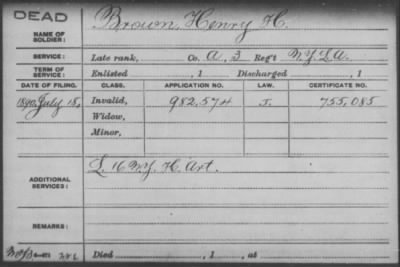 DEAD
NAME OF SOLDIER: Brown, Henry H.
SERVICE: Late rank, Co. A, 3 Reg't N.Y.L.A.
TERM OF SERVICE: Enlisted , 1 Discharged , 1
DATE OF FILING. CLASS. APPLICATION NO. LAW. CERTIFICATE NO.
1890, July 18, Invalid, 982,574 J. 755,085
Widow,
Minor,
ADDITIONAL SERVICES: L. 16 N.Y. H. Art.
REMARKS:
Died , 1 , at